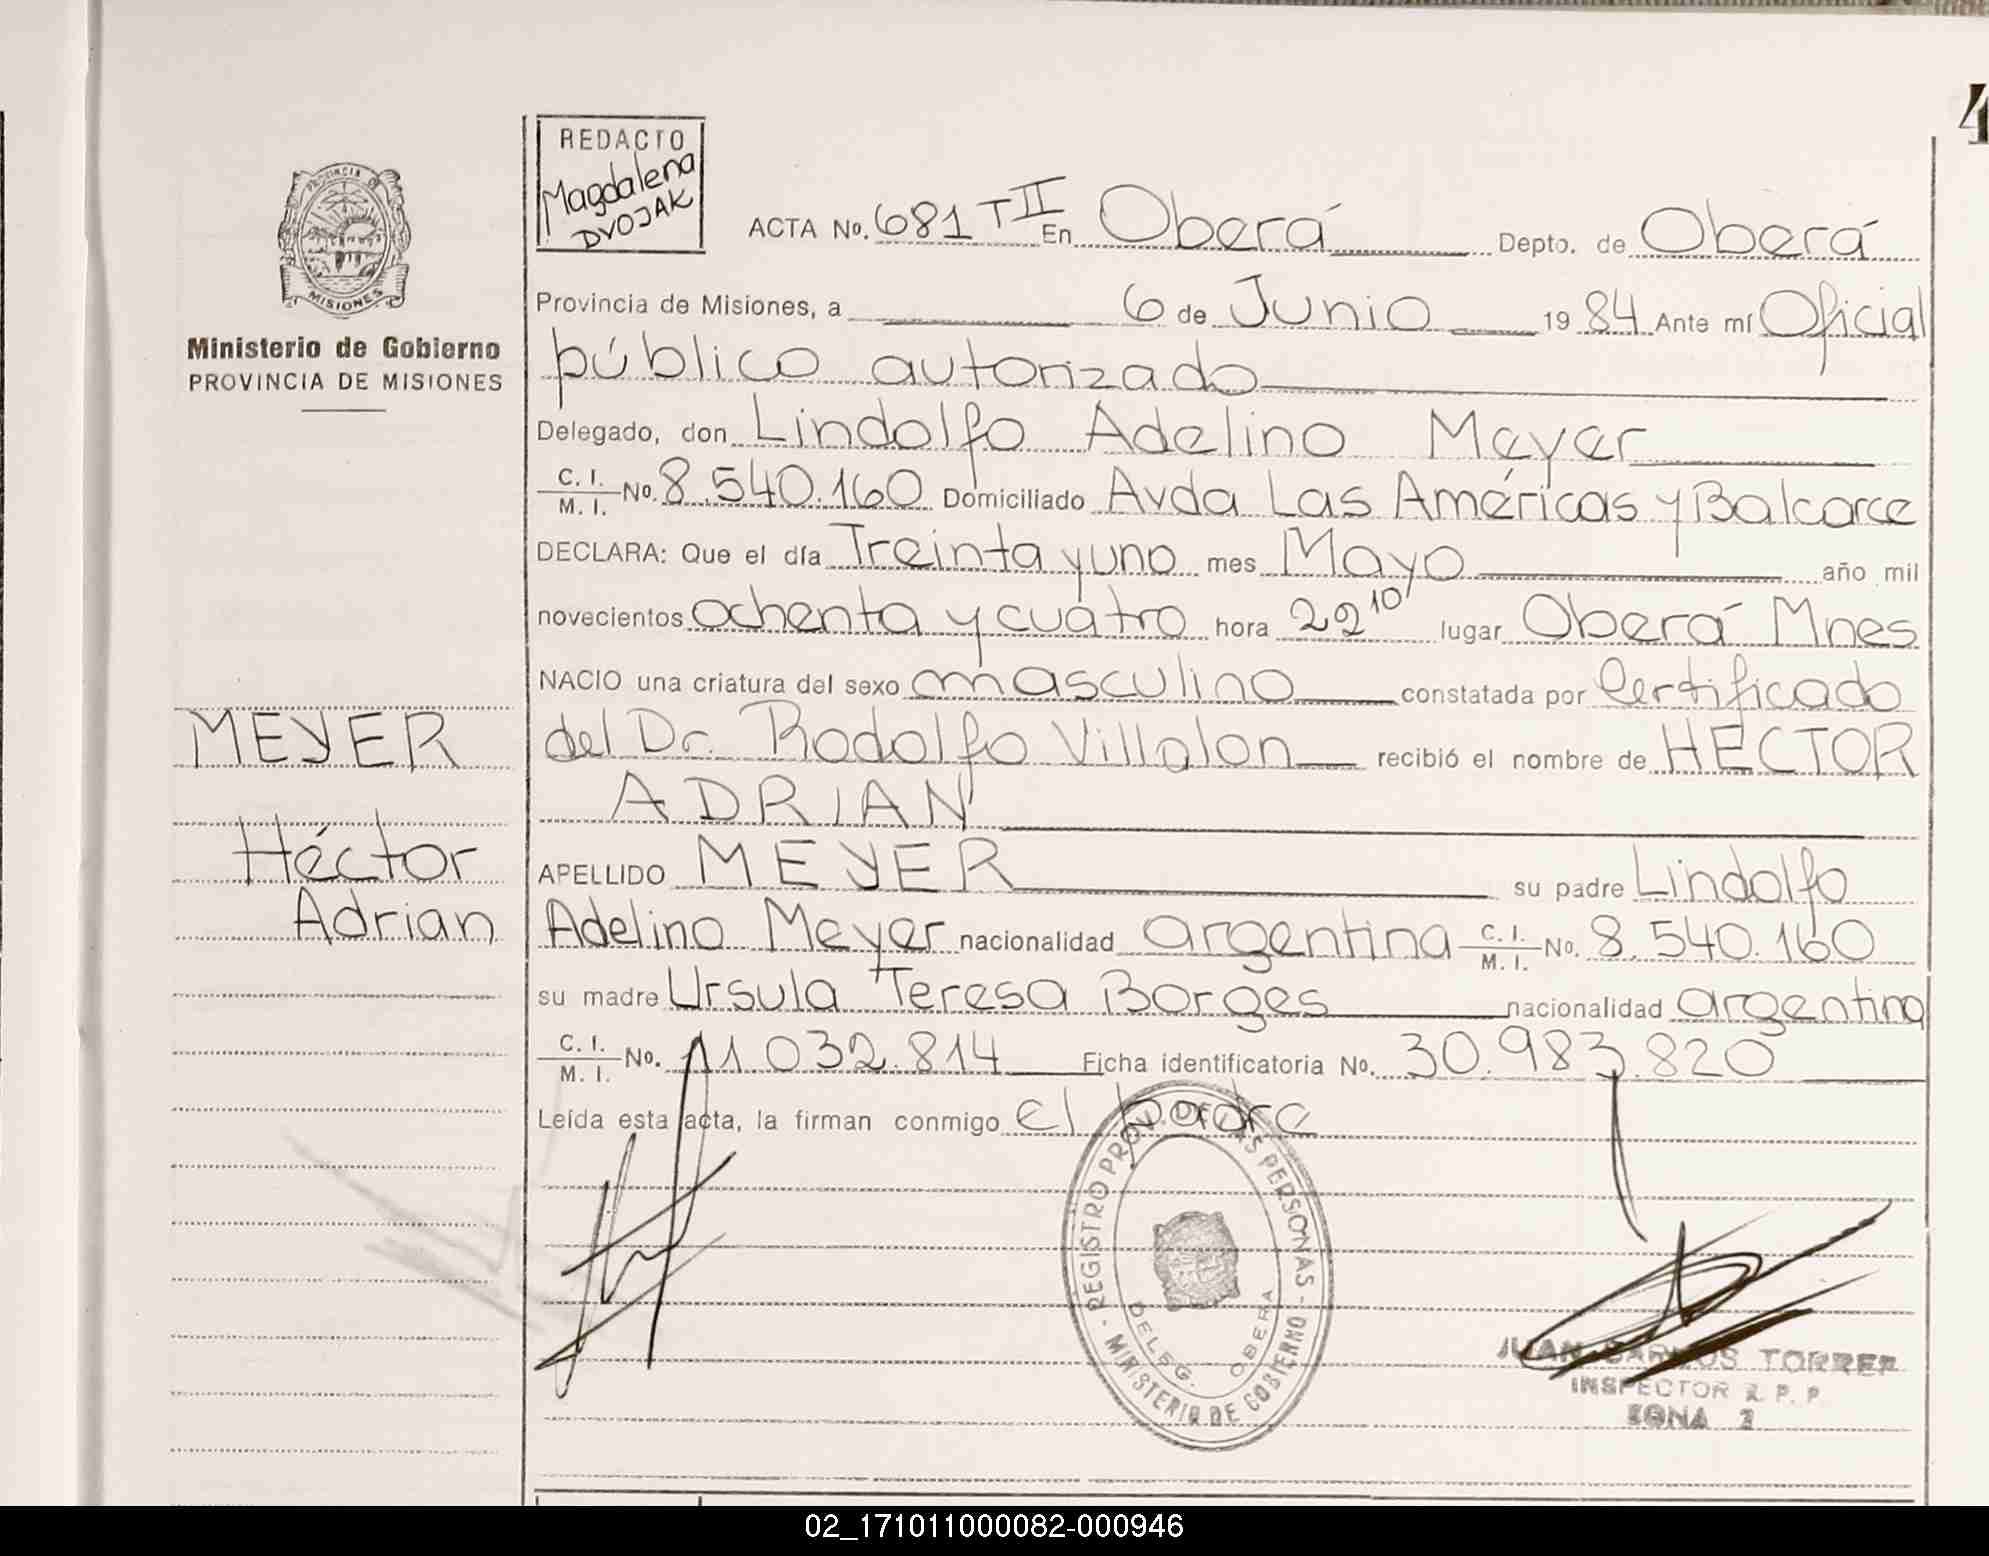 4
REDACTO
Magdalena
DVOJAK
PROVINCIA DE
MISIONES
Ministerio de Gobierno
PROVINCIA DE MISIONES
ACTA No. 681 T II En Oberá Depto. de Oberá
Provincia de Misiones, a 6 de Junio 1984 Ante mí Oficial
público autorizado
Delegado, don Lindolfo Adelino Meyer
C. I. / M. I. No. 8.540.160 Domiciliado Avda Las Américas y Balcarce
DECLARA: Que el día Treinta y uno mes Mayo año mil
novecientos ochenta y cuatro hora 22 10' lugar Oberá Mnes
NACIO una criatura del sexo masculino constatada por Certificado
del Dr. Rodolfo Villalon recibió el nombre de HECTOR
ADRIAN
APELLIDO MEYER su padre Lindolfo
Adelino Meyer nacionalidad argentina C. I. / M. I. No. 8.540.160
su madre Ursula Teresa Borges nacionalidad argentina
C. I. / M. I. No. 11.032.814 Ficha identificatoria No. 30.983.820
Leída esta acta, la firman conmigo el padre
MEYER
Héctor
Adrian
REGISTRO PROV. DE LAS PERSONAS - MINISTERIO DE GOBIERNO -
DELEG. OBERA
JUAN CARLOS TORRES
INSPECTOR R. P. P
ZONA 2
02_171011000082-000946